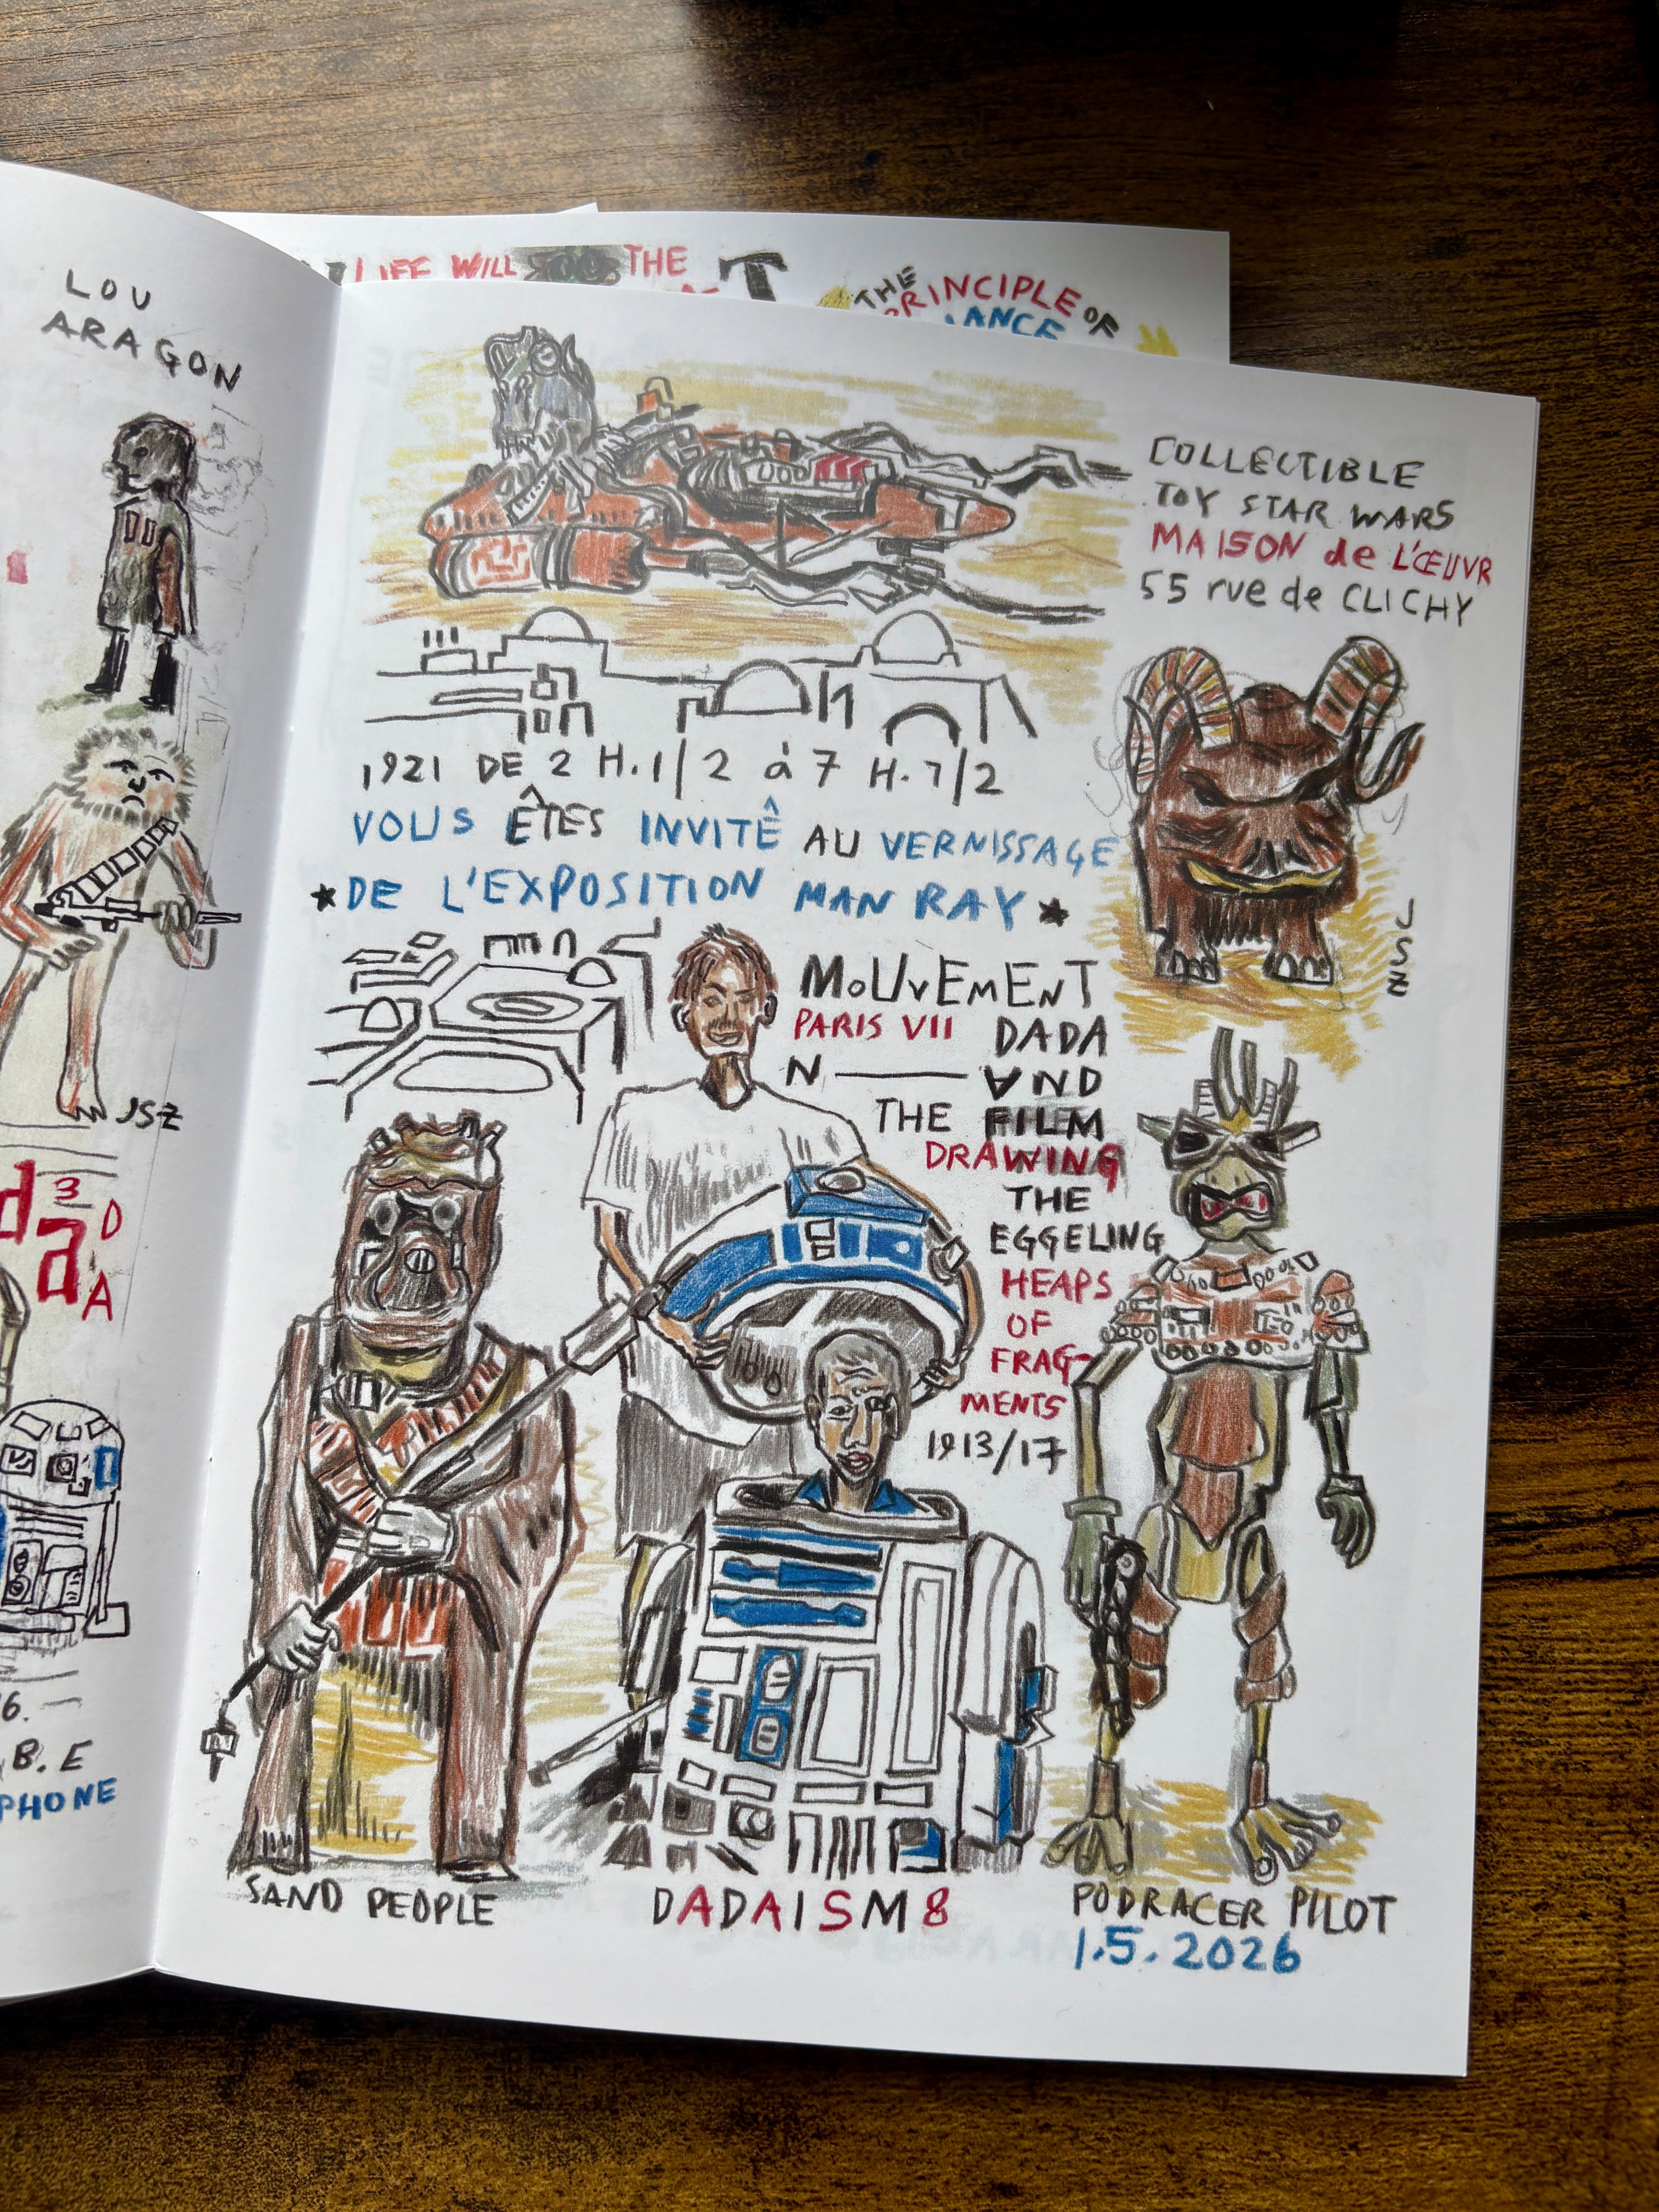 LOU
ARAGON
JSZ
3
D
A
6.
B.E
PHONE
LIFE WILL
THE
T
THE
PRINCIPLE OF
COLLECTIBLE
TOY STAR WARS
MAISON de L'ŒUVR
55 rue de CLICHY
1921 DE 2 H.1/2 à 7 H.1/2
VOUS ÊTES INVITÊ AU VERNISSAGE
★DE L'EXPOSITION MAN RAY★
JSZ
MOUVEMENT
PARIS VII DADA
N — AND
THE FILM
DRAWING
THE
EGGELING
HEAPS
OF
FRAG-
MENTS
1913/17
SAND PEOPLE
DADAISM8
PODRACER PILOT
1.5.2026